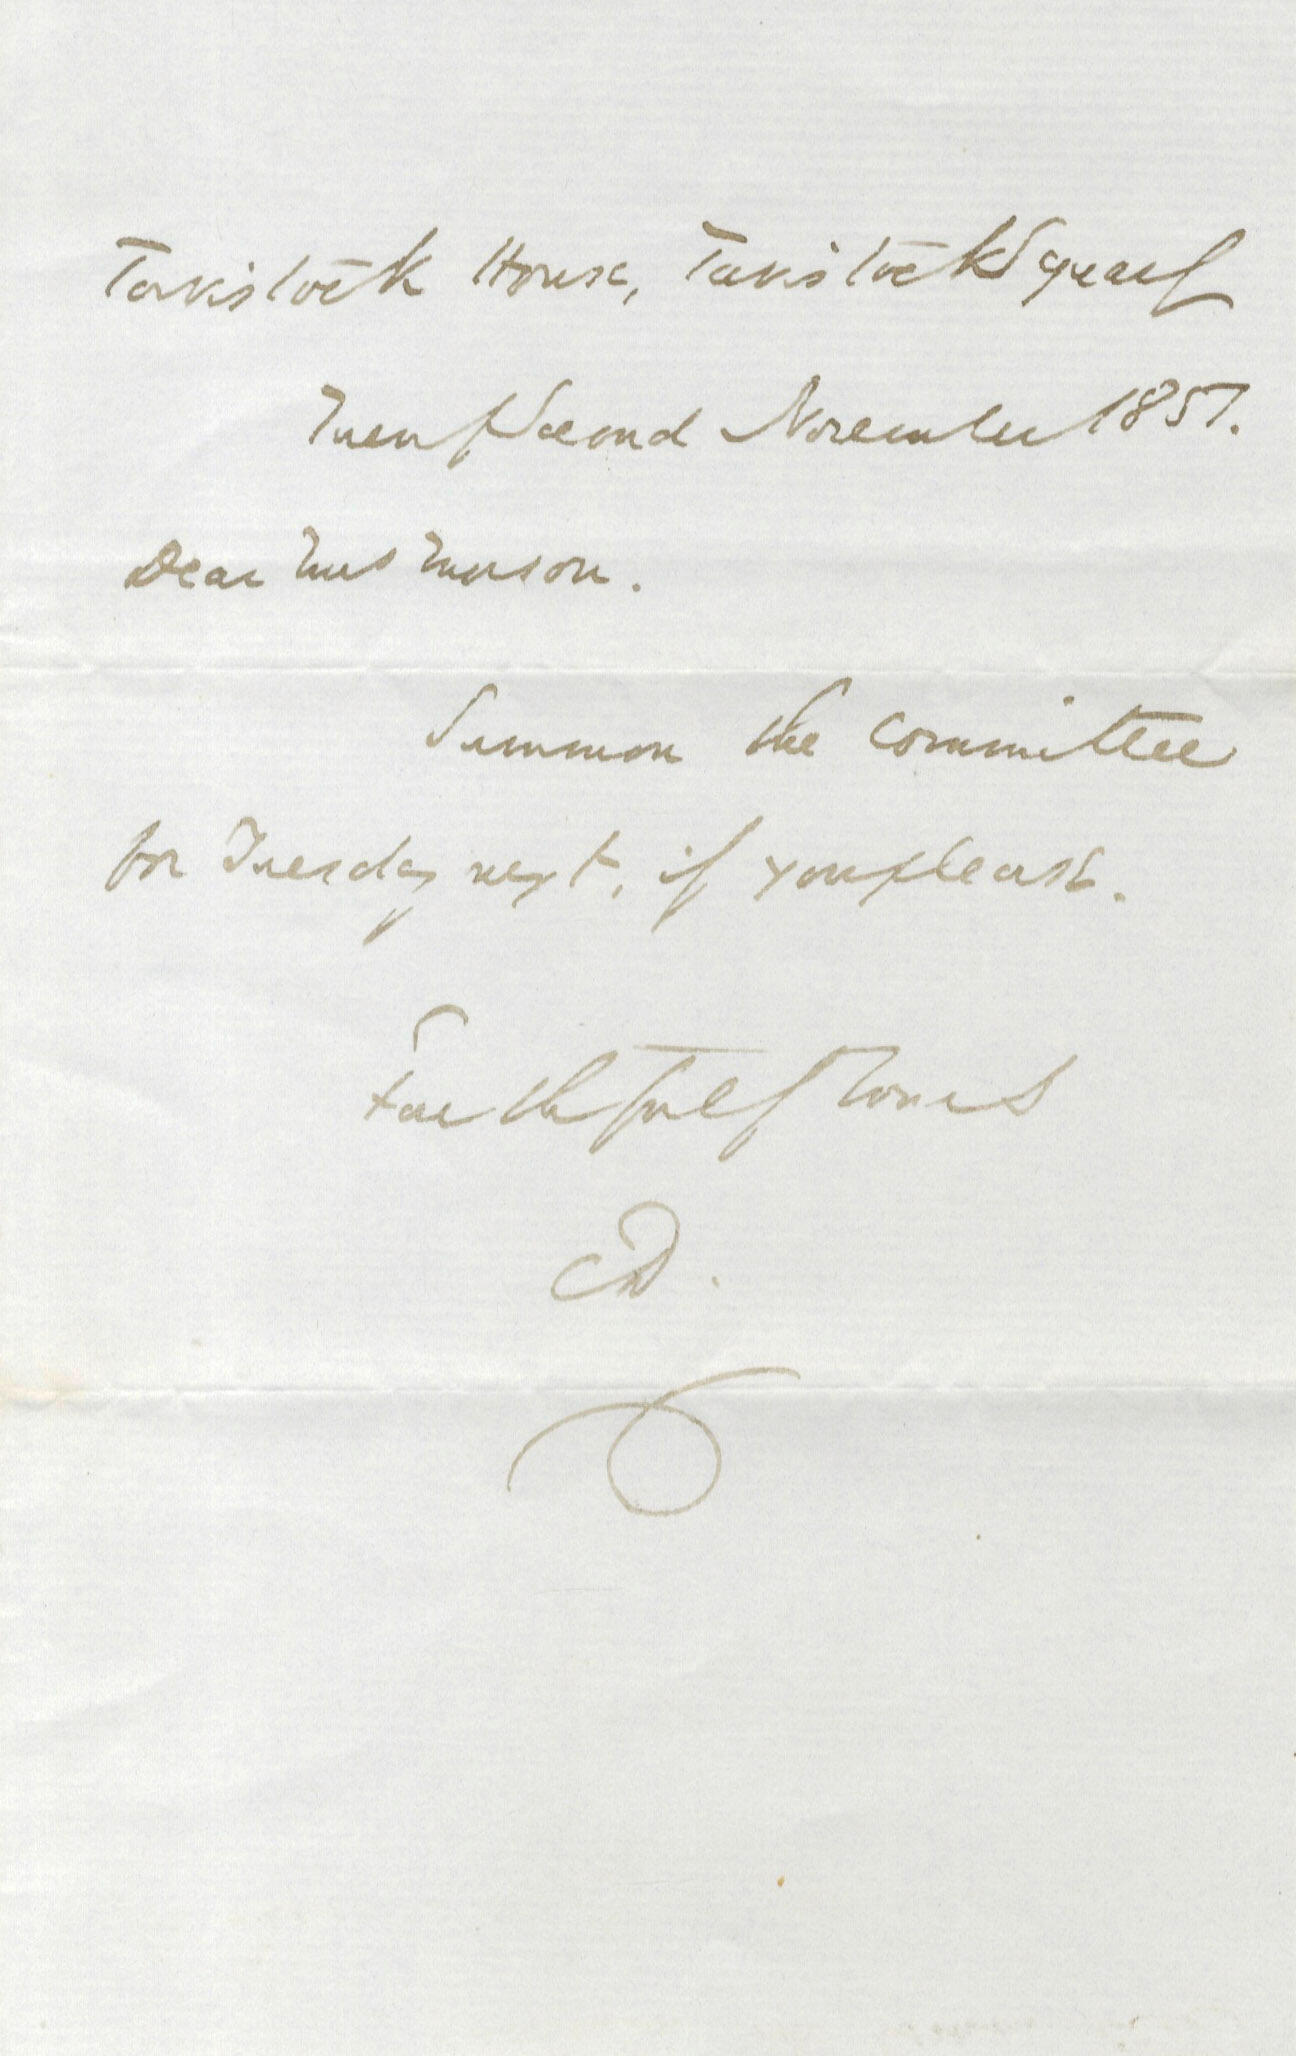 Tavistock House, Tavistock Square
Twenty Second November 1851.
Dear Mrs Morson.
Summon the Committee
for Tuesday next, if you please.
Faithfully Yours
CD.